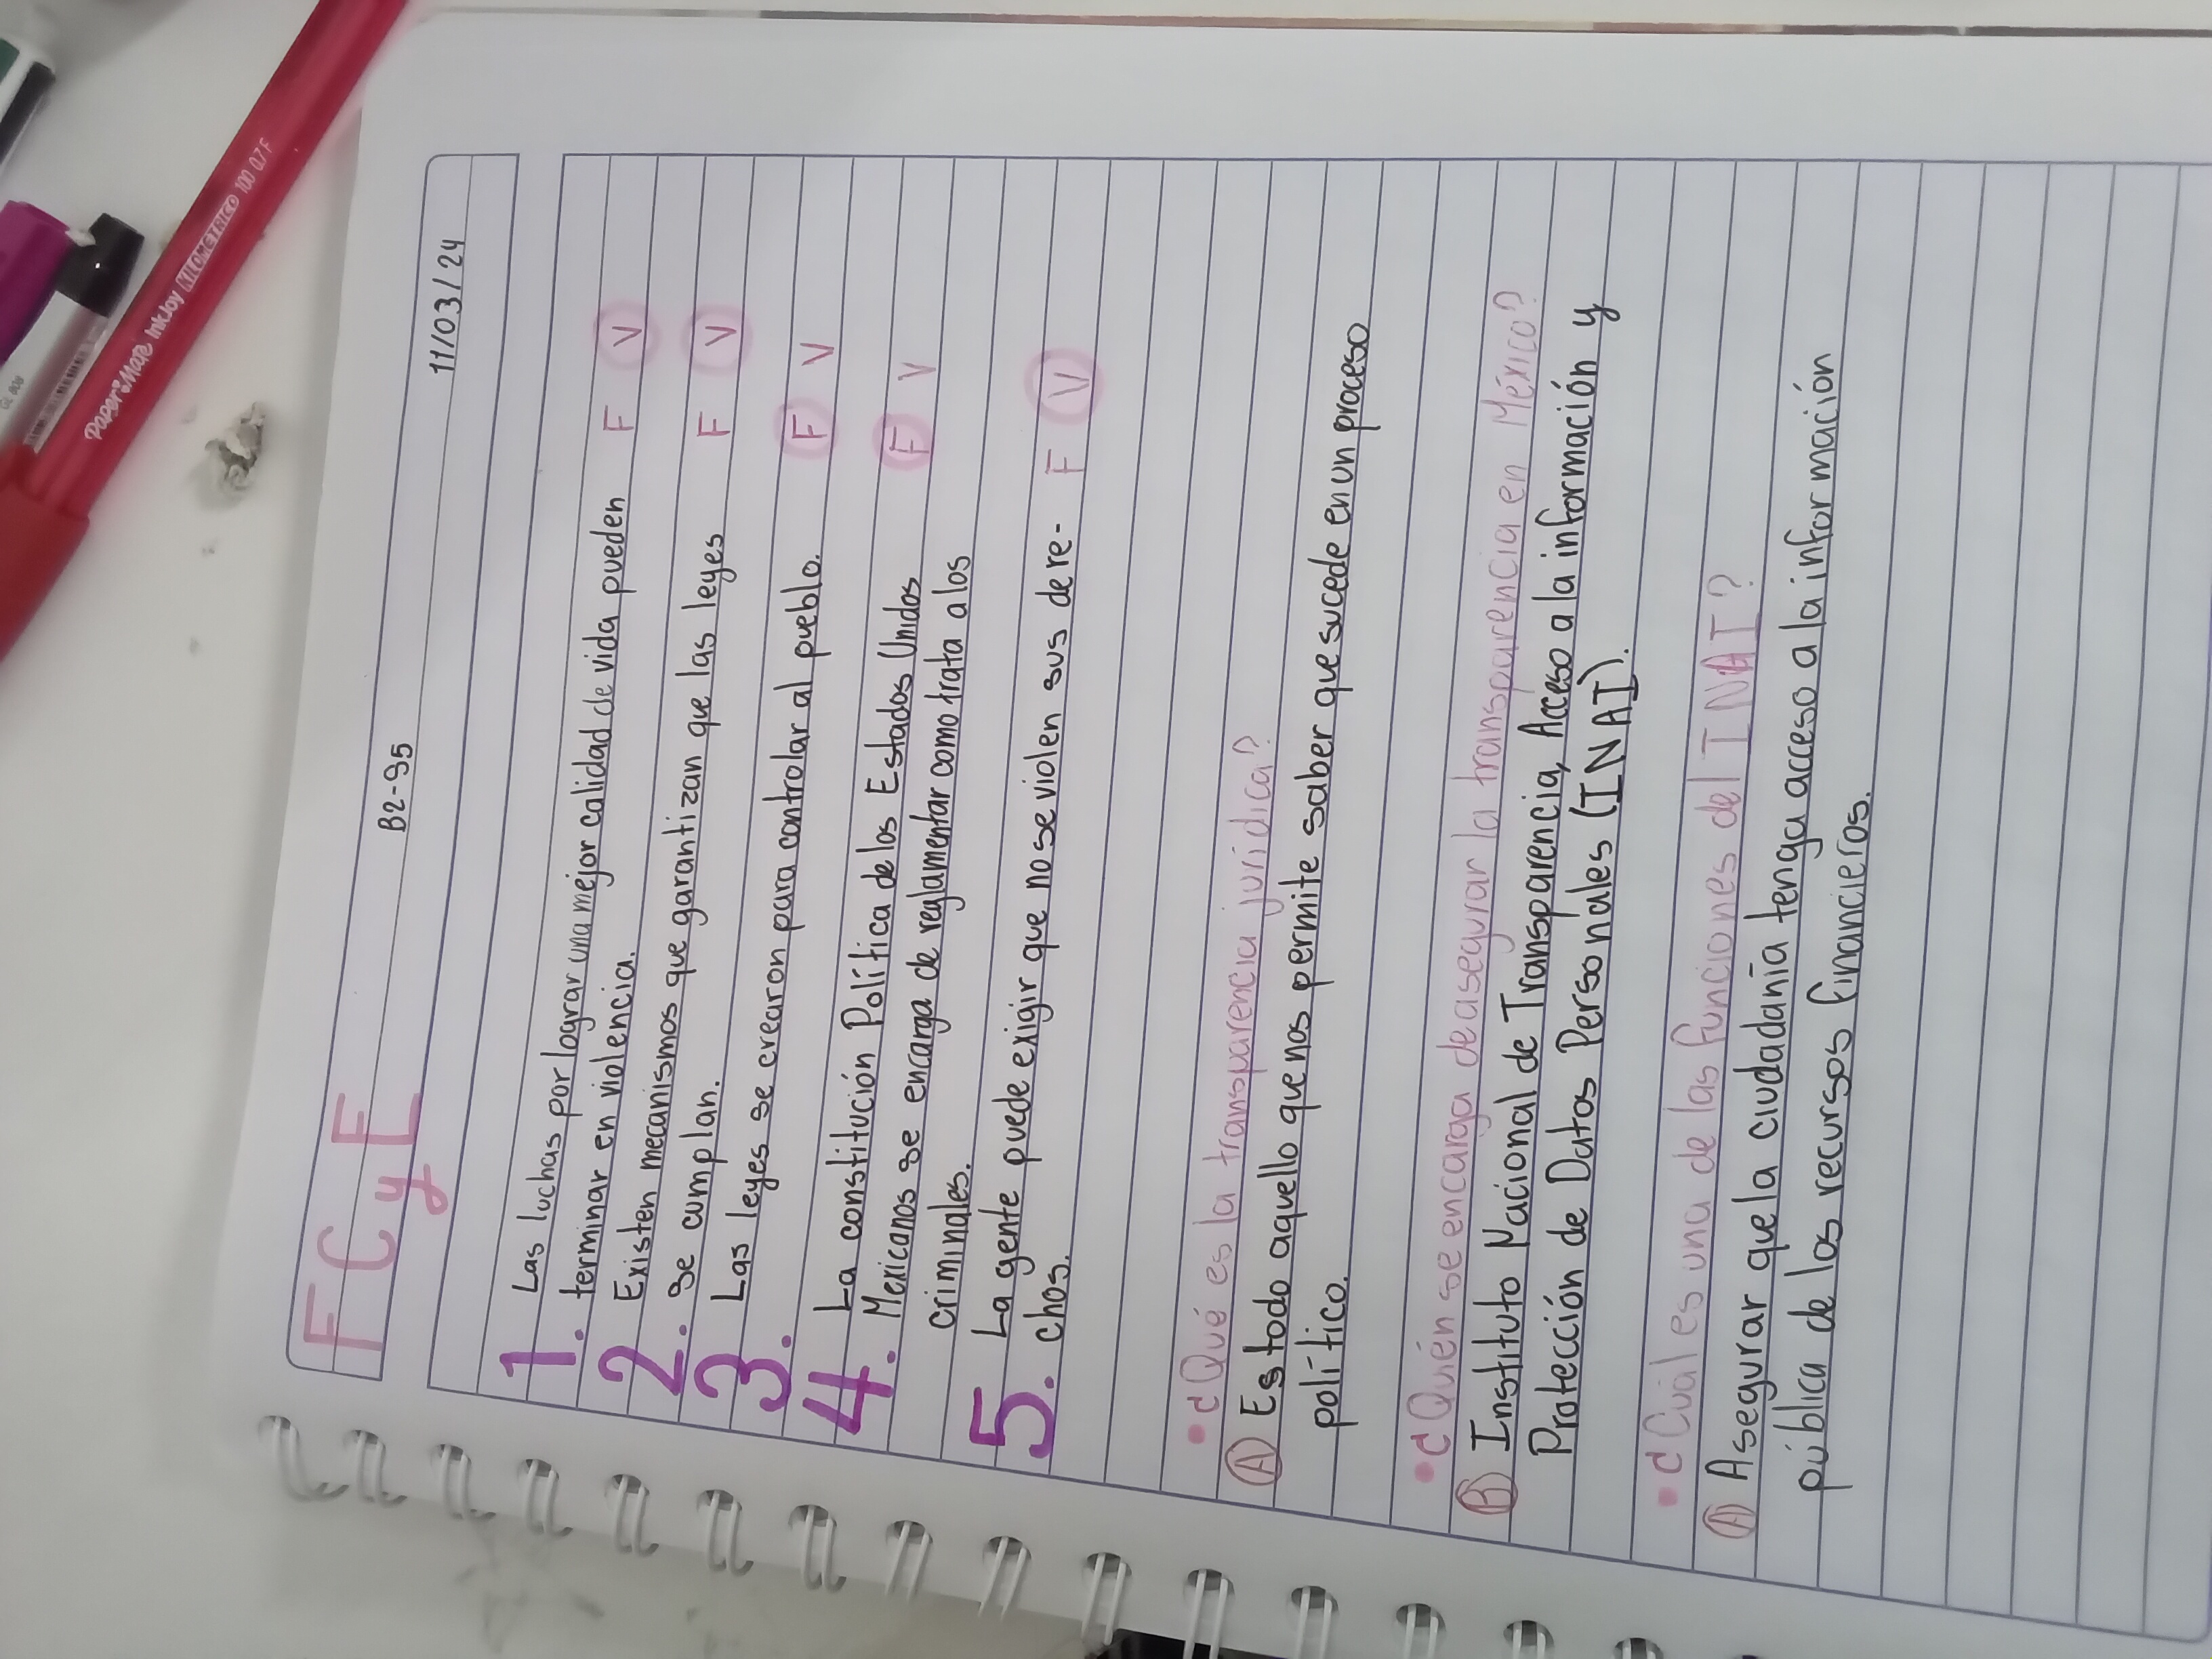 FCyE
B2-S5
11/03/24
1. Las luchas por lograr una mejor calidad de vida pueden F V
terminar en violencia.
2. Existen mecanismos que garantizan que las leyes F V
se cumplan.
3. Las leyes se crearon para controlar al pueblo. F V
4. La constitución Política de los Estados Unidos F V
Mexicanos se encarga de reglamentar como trata a los
criminales.
5. La gente puede exigir que no se violen sus dere- F V
chos.
• ¿Qué es la transparencia jurídica?
A Es todo aquello que nos permite saber que sucede en un proceso
político.
• ¿Quién se encarga de asegurar la transparencia en México?
B Instituto Nacional de Transparencia, Acceso a la información y
Protección de Datos Personales (INAI).
• ¿Cuál es una de las funciones del INAI?
A Asegurar que la ciudadanía tenga acceso a la información
pública de los recursos financieros.
Paper Mate InkJoy KILOMETRICO 100 0.7 F